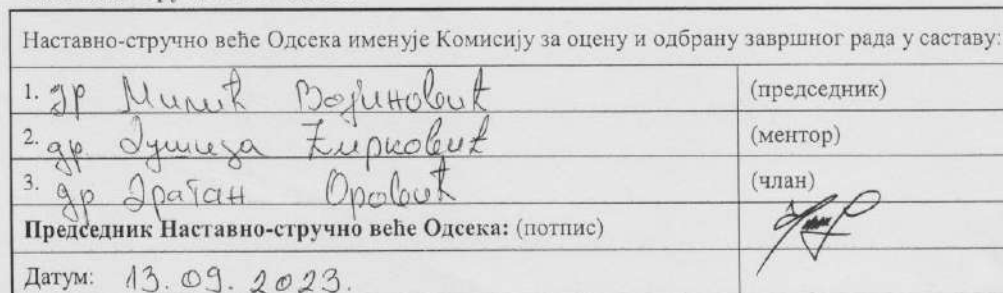 Наставно-стручно веће Одсека именује Комисију за оцену и одбрану завршног рада у саставу:
1. др Милић Војиновић (председник)
2. др Душица Ћирковић (ментор)
3. др Драган Оровић (члан)
Председник Наставно-стручно веће Одсека: (потпис)
Датум: 13.09.2023.